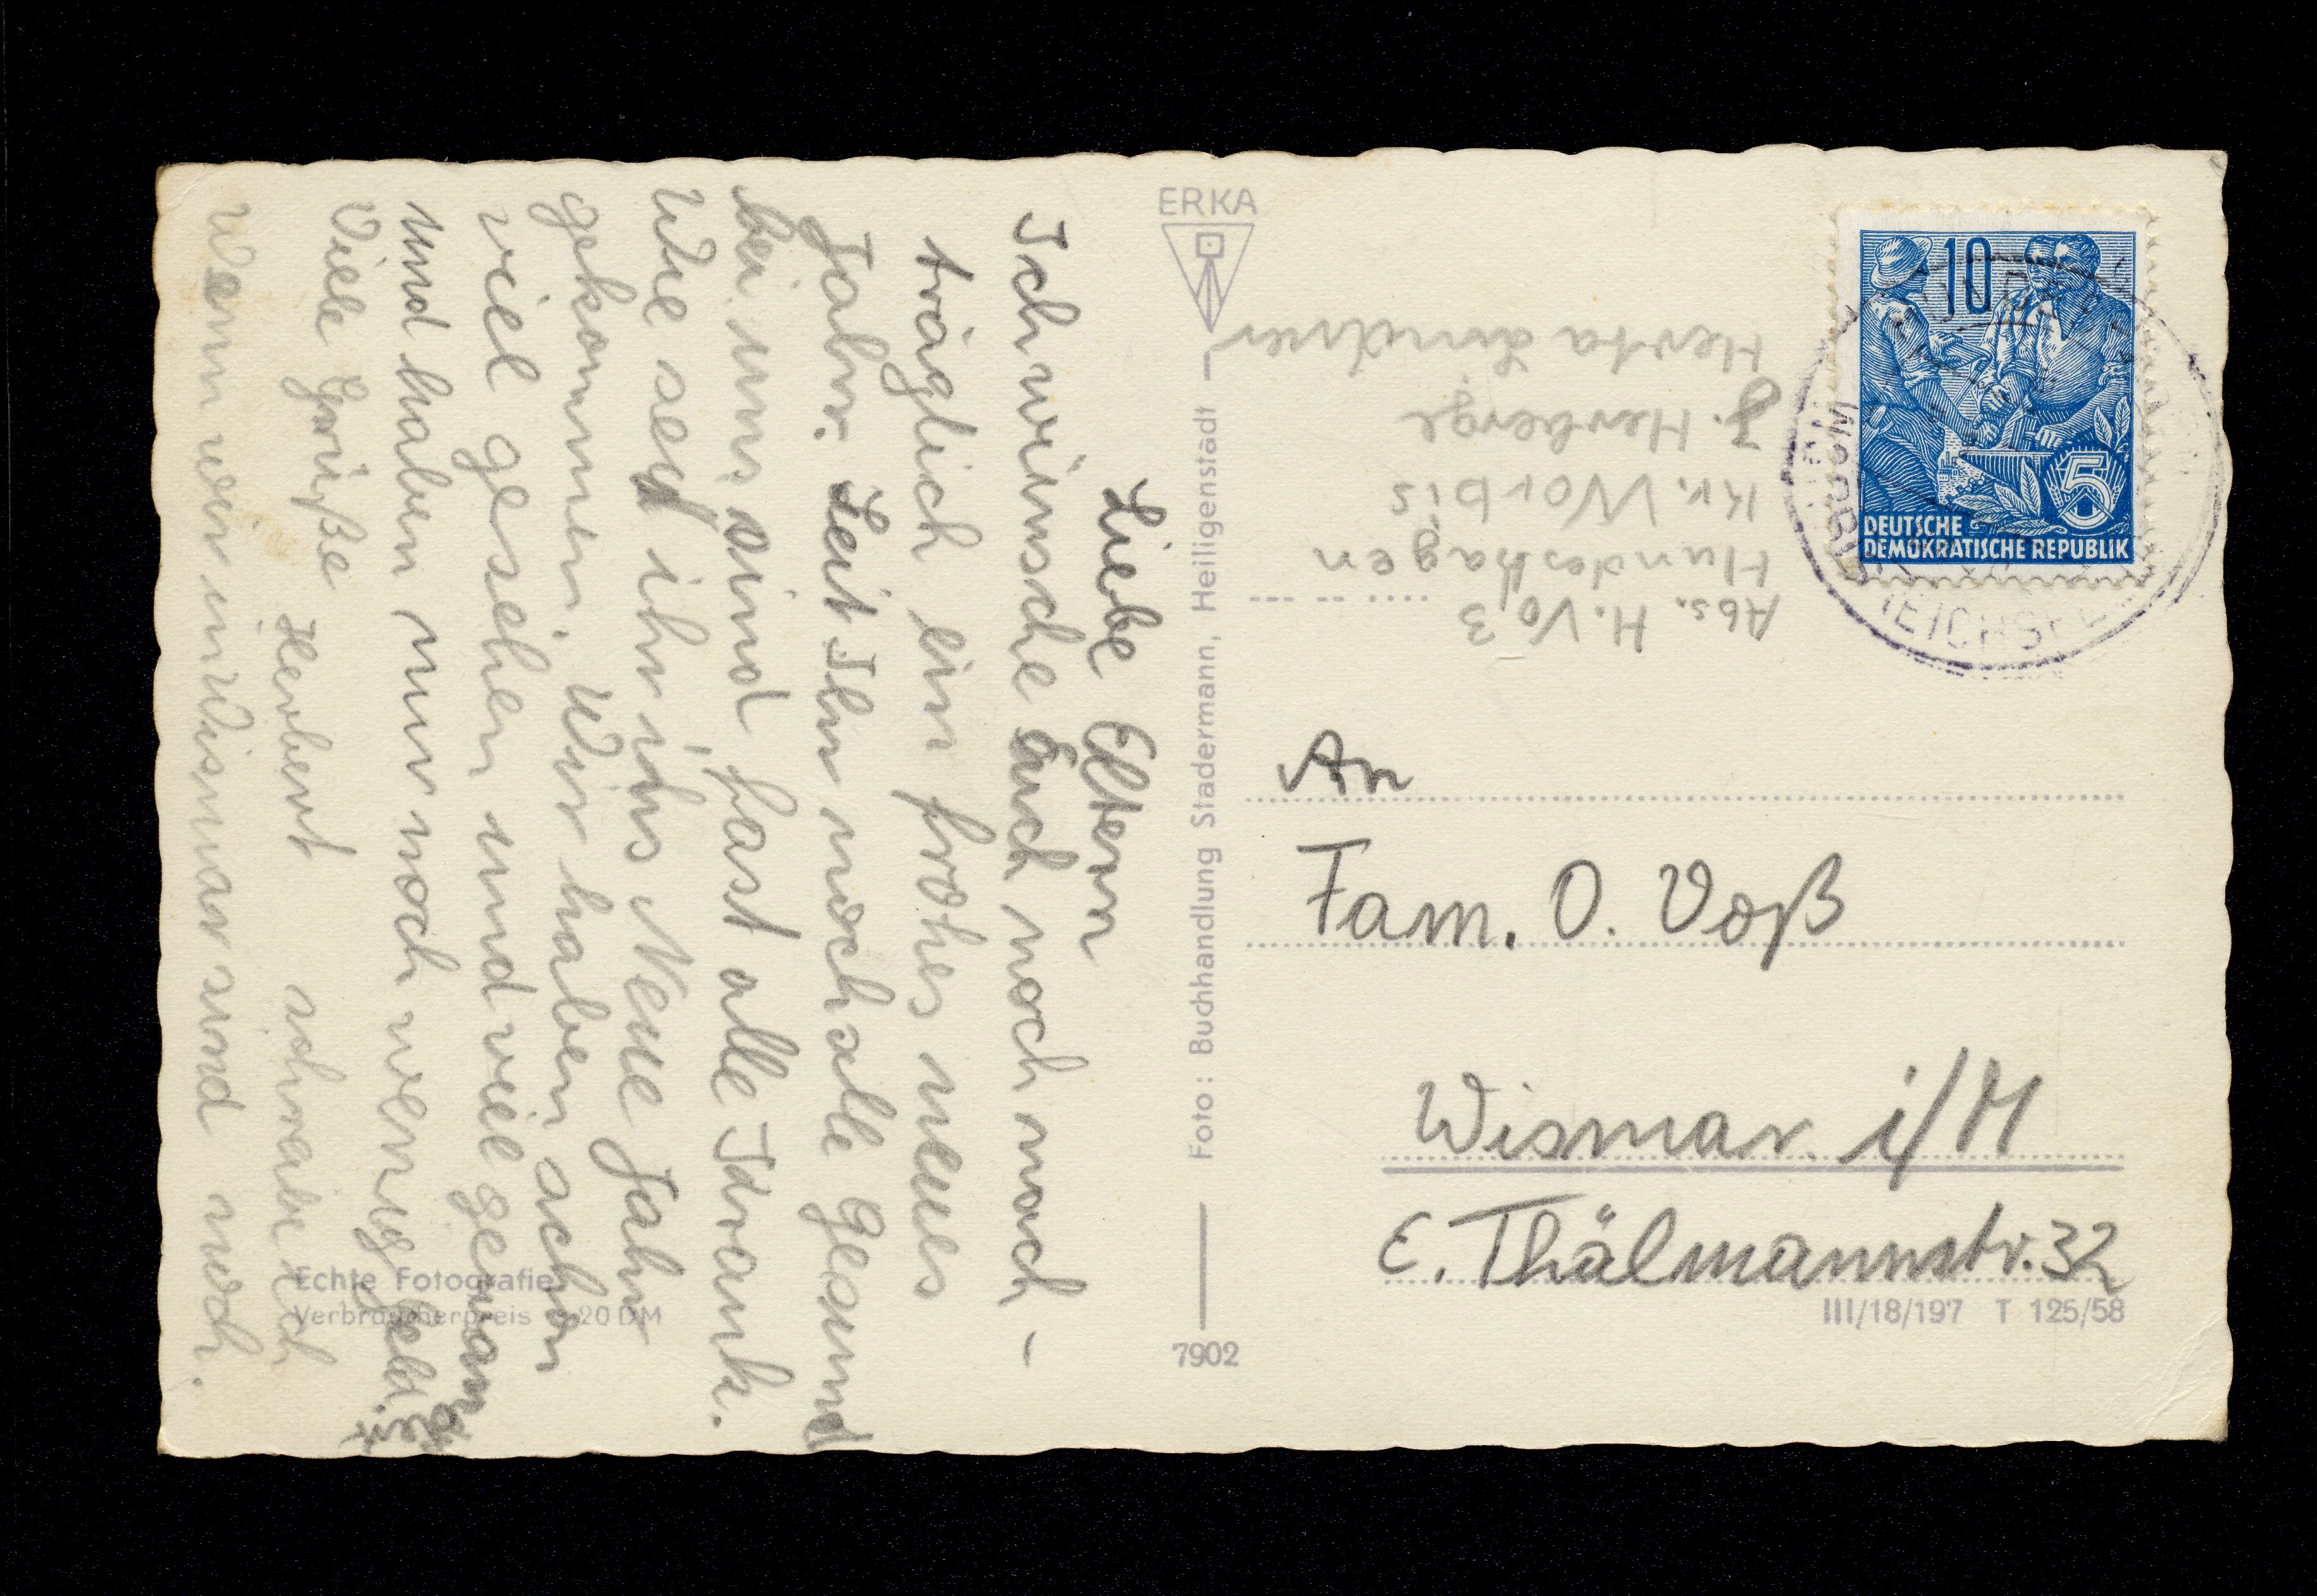 Liebe Eltern
Ich wünsche Euch noch nach-
träglich ein frohes neues
Jahr. Seit Ihr noch alle Gesund
bei uns sind fast alle Krank.
Wie seid ihr ins Neue Jahr
gekommen. Wir haben schon
viel gesehen und viel gewan
und haben nur noch wenig Geld.
Viele Grüße
Herbert schreibe ich
Wenn wir in Wismar sind noch.
ERKA
Foto: Buchhandlung Stadermann, Heiligenstadt
7902
Echte Fotografie
Verbraucherpreis 20 DM
Abs. H. Voß
Hundeshagen
Kr. Worbis
J. Herberge
Herta Lindner
10
5
DEUTSCHE
DEMOKRATISCHE REPUBLIK
An
Fam. O. Voß
Wismar i/M
E. Thälmannstr. 32
III/18/197 T 125/58